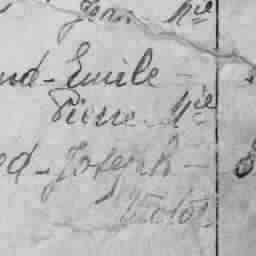 Jean Mie
nd-Emile -
Pierre Mie
ed-Joseph -
Victor